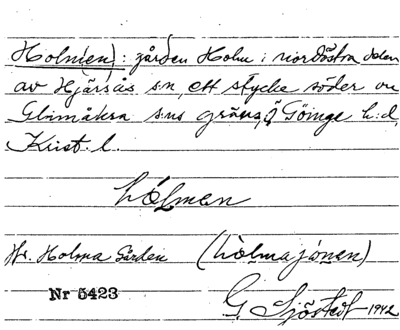 Holmen): gården Holm i nordöstra delen
av Hjärsås s:n, ett stycke söder om
Glimåkra s:ns gräns, Ö Göinge h:d,
Krist. l.
hólmen
Hr. Holma Gården (hòlmajónen)
Nr 5423
G. Sjöstedt 1942